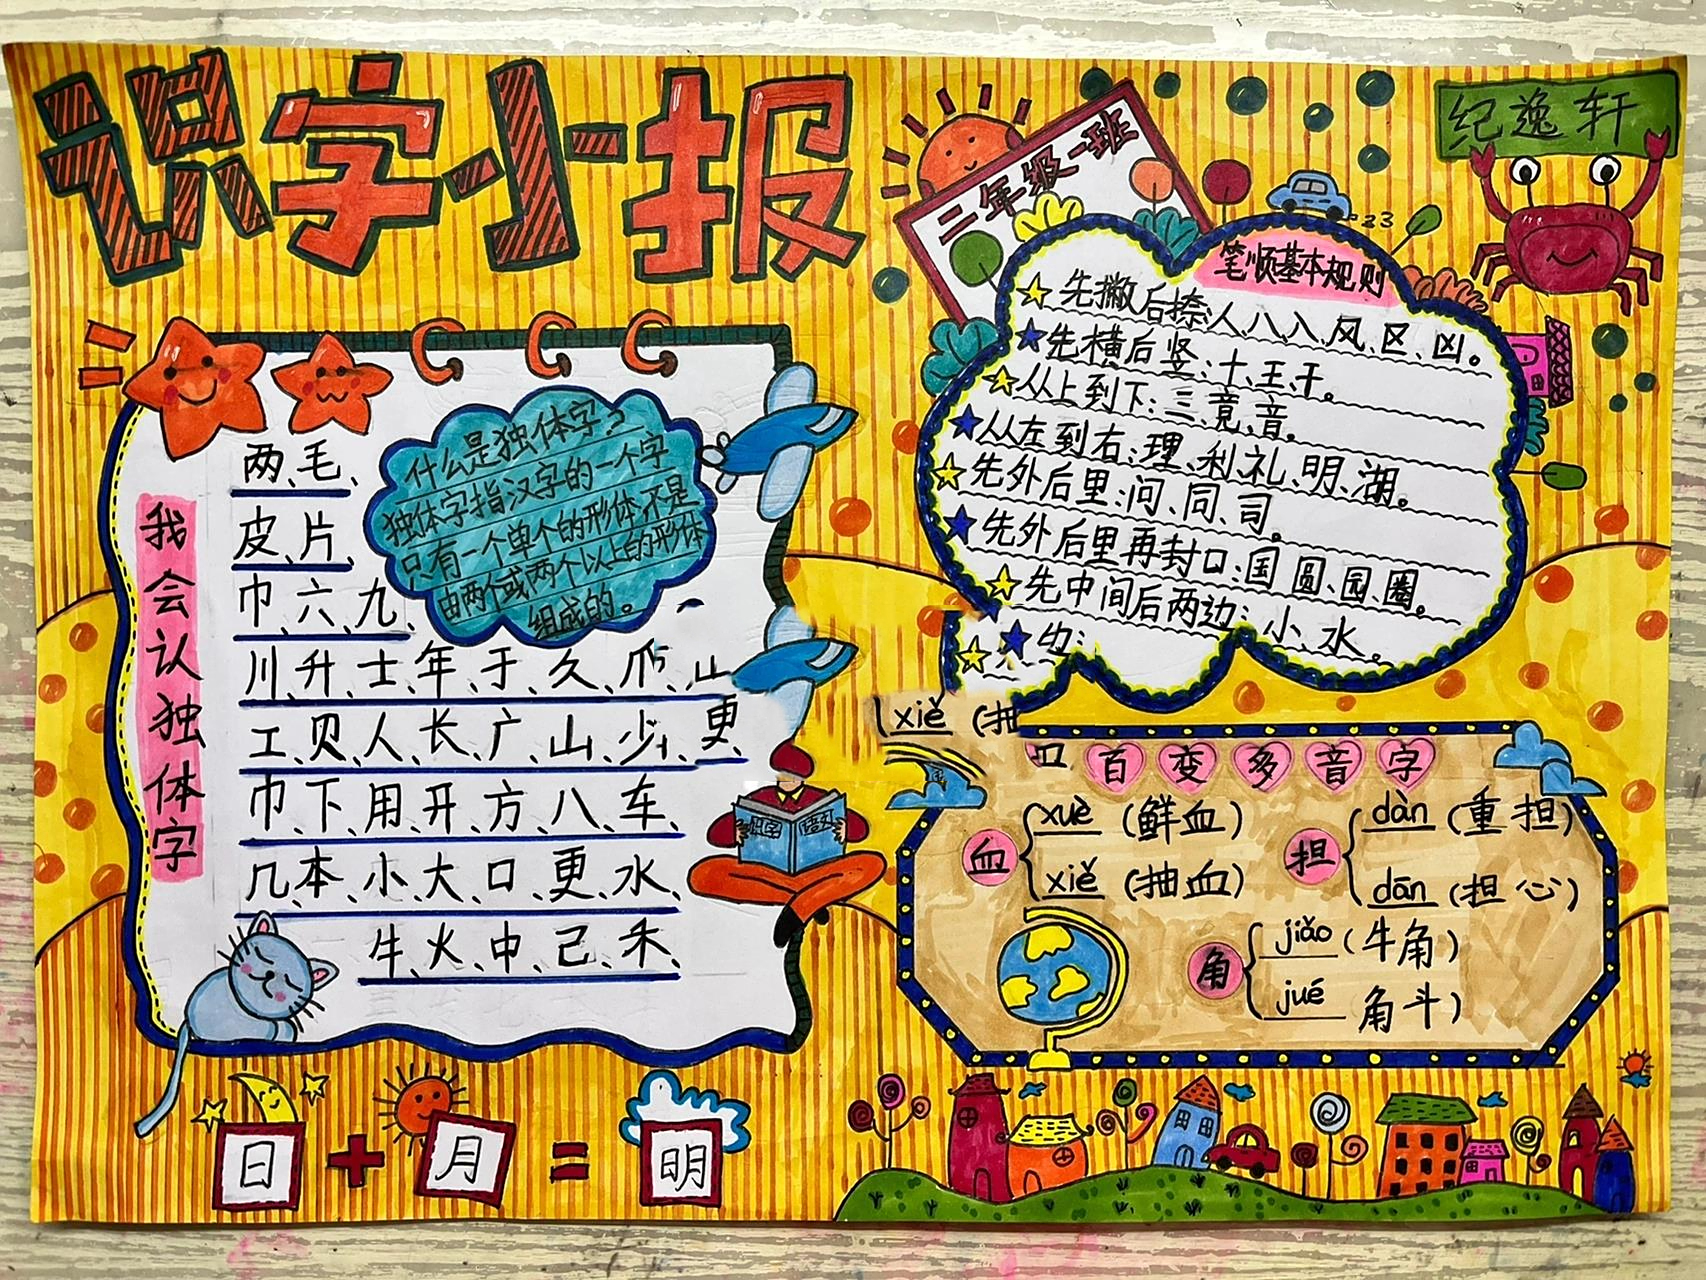 识字小报
二年级一班
纪逸轩
我会认独体字
两、毛、
皮、片、
巾、六、九、
川、升、士、年、于、久、爪、山
工、贝、人、长、广、山、少、更、
巾、下、用、开、方、八、车、
几、本、小、大、口、更、水、
牛、火、中、己、禾、
什么是独体字?
独体字指汉字的一个字
只有一个单个的形体,不是
由两个或两个以上的形体
组成的。
识字 语文
日+月=明
笔顺基本规则
先撇后捺:人、八、入、风、区、凶。
先横后竖:十、王、干。
从上到下:三、竟、音。
从左到右:理、利、礼、明、湖。
先外后里:问、同、司。
先外后里再封口:国、圆、园、圈。
先中间后两边:小、水。
边:
xiě (抽
百变多音字
血
xuè (鲜血)
xiě (抽血)
担
dàn (重担)
dān (担心)
角
jiǎo (牛角)
jué 角斗)